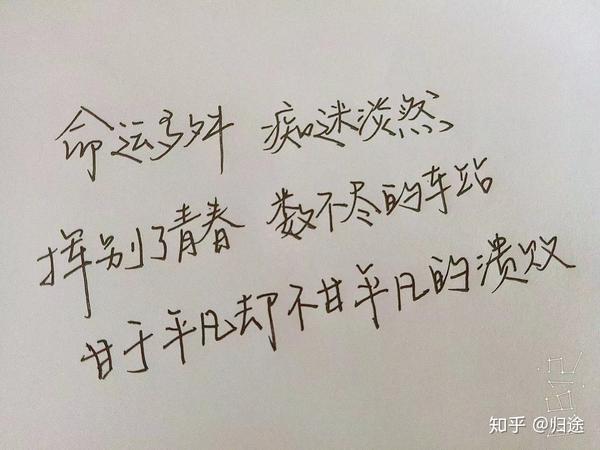 命运多舛 痴迷淡然
挥别了青春 数不尽的车站
甘于平凡却不甘平凡的溃败
知乎 @归途